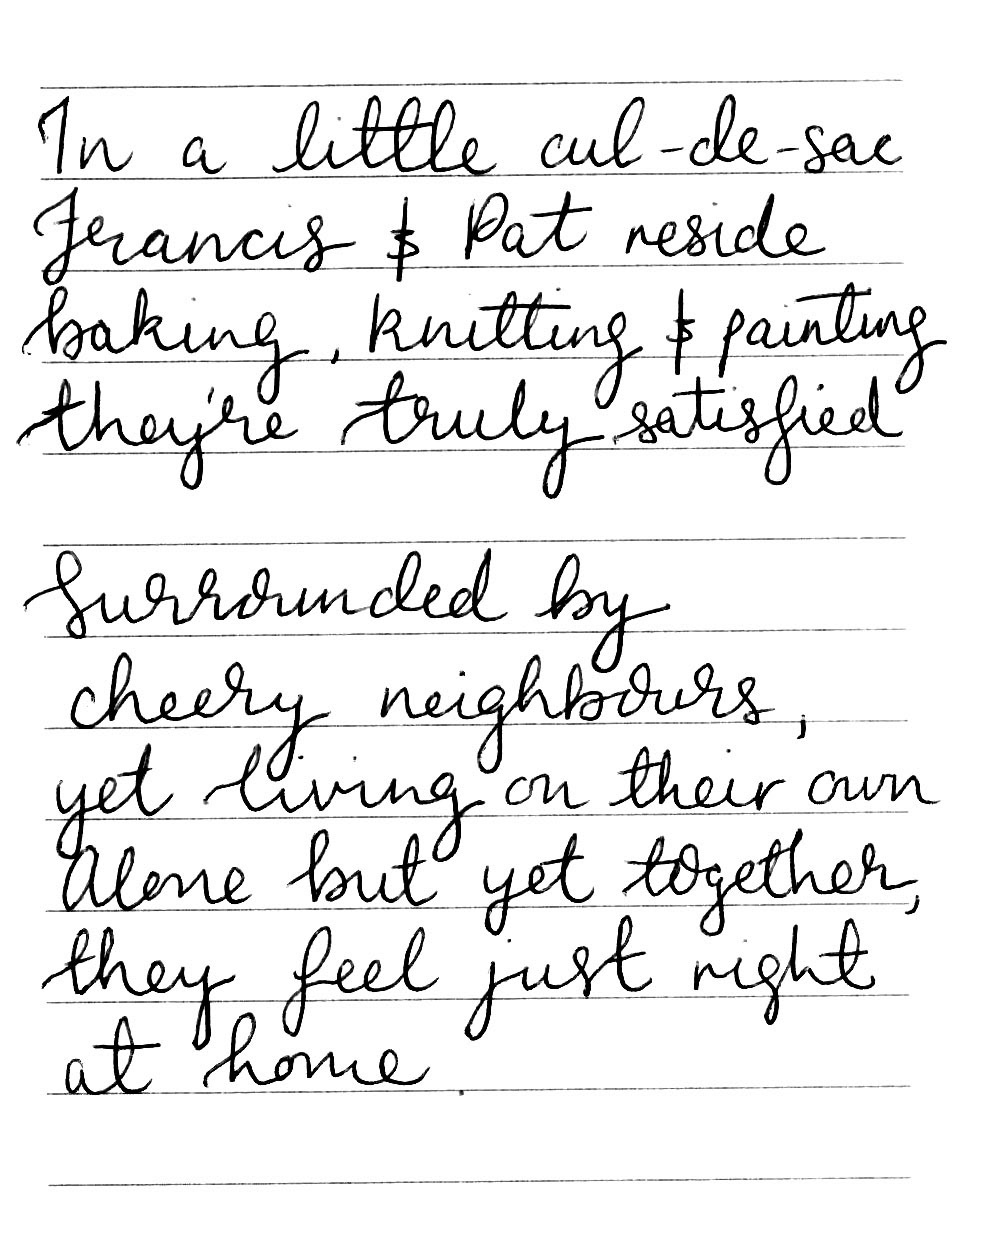 In a little cul-de-sac
Francis & Pat reside
baking, knitting & painting
they're truly satisfied
Surrounded by
cheery neighbours,
yet living on their own
Alone but yet together,
they feel just right
at home.